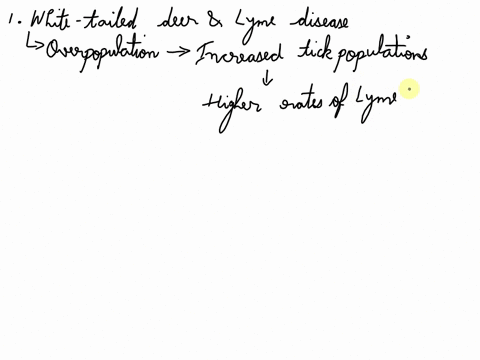 1. White-tailed deer & Lyme disease
↳ Overpopulation → Increased tick populations
↓
Higher rates of Lyme